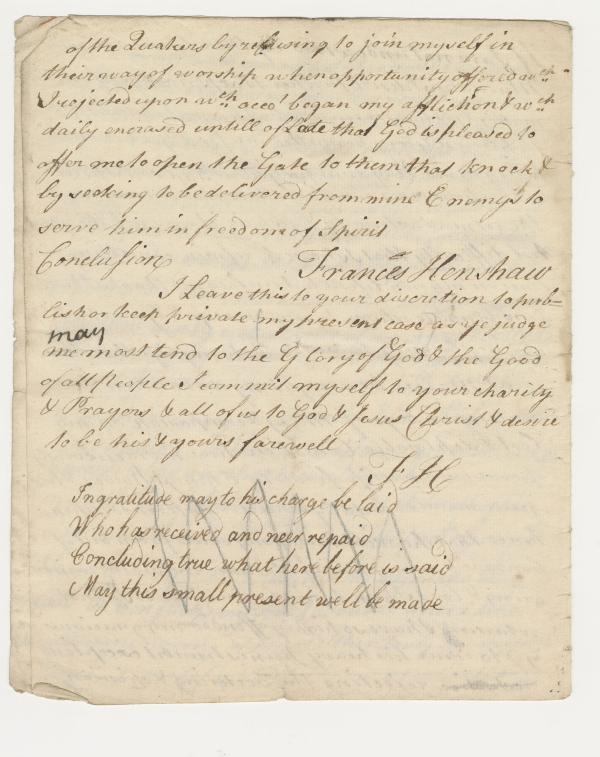 of the Quakers by refusing to join myself in
their way of worship when opportunity offered wch
I rejected upon wch acco' began my affliction & wch
daily encrased untill of Late that God is pleased to
offer me to open the Gate to them that knock &
by seeking to be delivered from mine Enemys to
serve him in freedom of Spirit
Conclusion Frances Henshaw
I Leave this to your discretion to pub-
lish or keep private my present case as ye judge
may
me most tend to the Glory of God & the Good
of all People I commit myself to your charity
& Prayers & all of us to God & Jesus Christ & desire
to be his & yours farewell
F H
Ingratitude may to his charge be laid
Who has received and neer repaid
Concluding true what here before is said
May this small present well be made